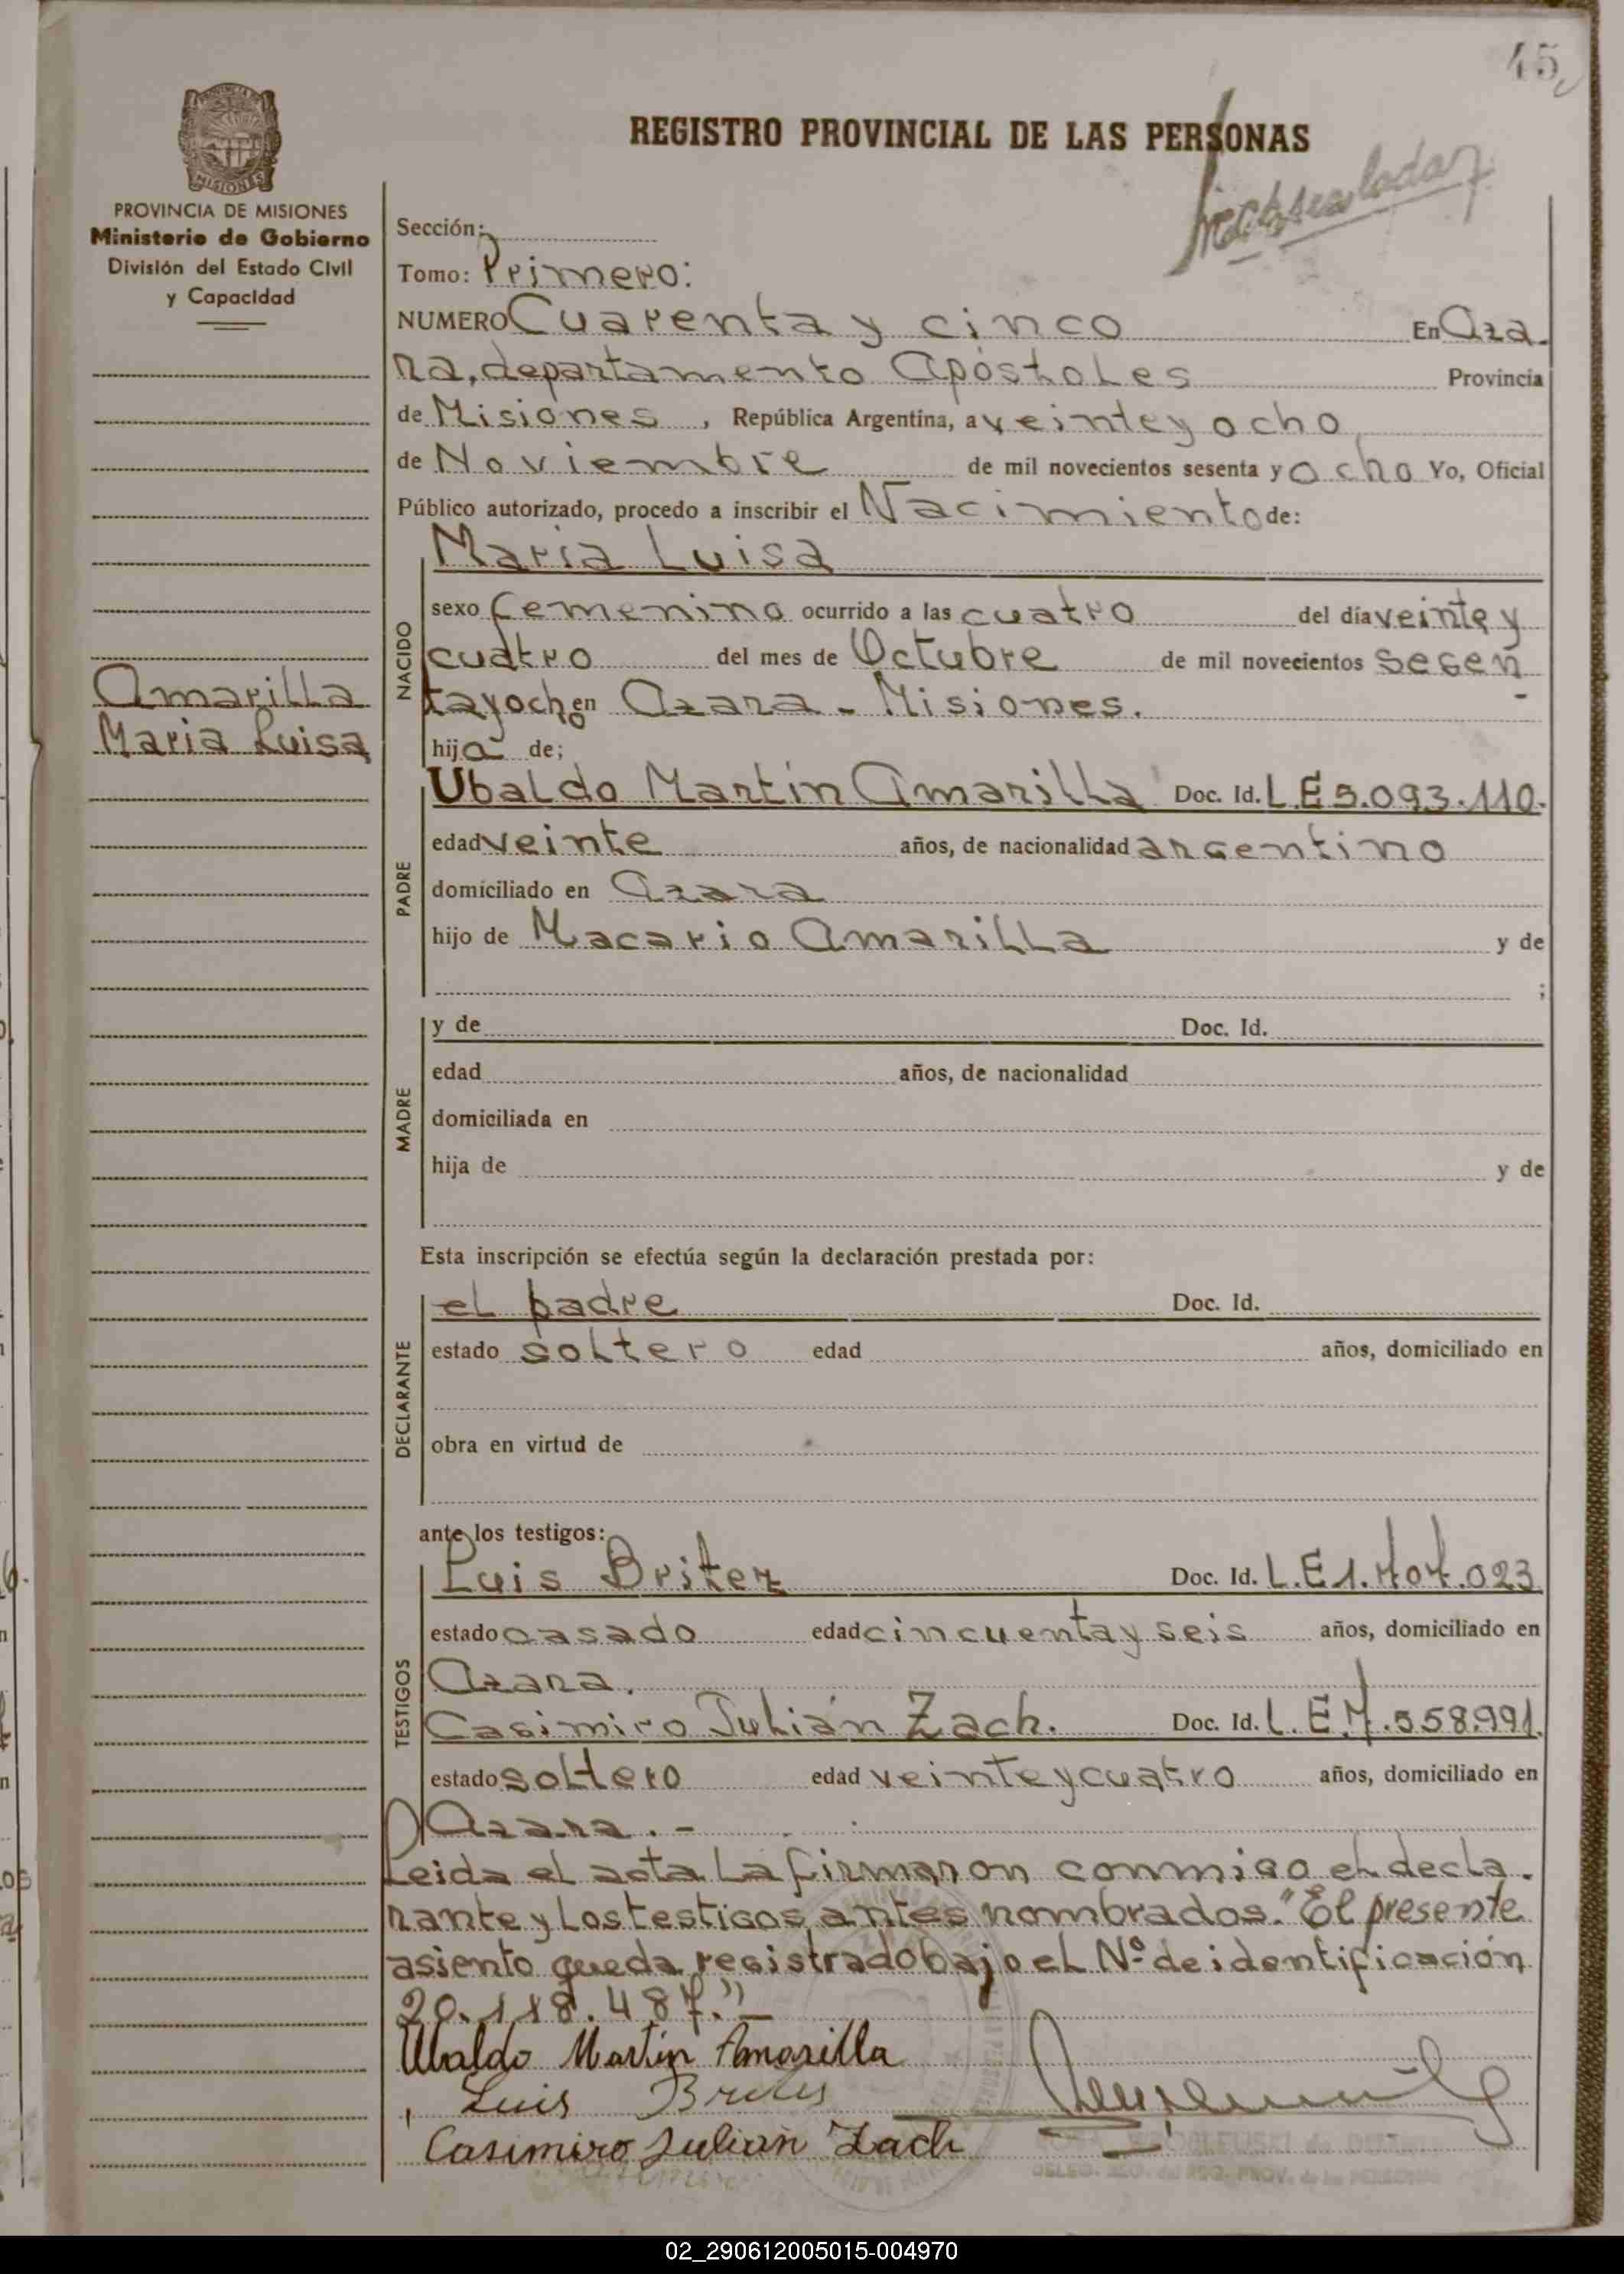 45
REGISTRO PROVINCIAL DE LAS PERSONAS
PROVINCIA DE MISIONES
Ministerio de Gobierno
División del Estado Civil
y Capacidad
Amarilla
Maria Luisa
Sección:
Tomo: Primero:
NUMERO Cuarenta y cinco En Aza-
ra, departamento Apóstoles Provincia
de Misiones, República Argentina, a veinte y ocho
de Noviembre de mil novecientos sesenta y ocho Yo, Oficial
Público autorizado, procedo a inscribir el Nacimiento de:
Maria Luisa
NACIDO
sexo femenino ocurrido a las cuatro del día veinte y
cuatro del mes de Octubre de mil novecientos sesen
tayocho en Azara - Misiones.
hija de;
PADRE
Ubaldo Martín Amarilla Doc. Id. L.E 5.093.110.
edad veinte años, de nacionalidad argentino
domiciliado en Azara
hijo de Macario Amarilla y de
;
MADRE
y de Doc. Id.
edad años, de nacionalidad
domiciliada en
hija de y de
Esta inscripción se efectúa según la declaración prestada por:
DECLARANTE
el padre Doc. Id.
estado soltero edad años, domiciliado en
obra en virtud de
ante los testigos:
TESTIGOS
Luis Britez Doc. Id. L.E 1.707.023
estado casado edad cincuenta y seis años, domiciliado en
Azara.
Casimiro Julián Zach. Doc. Id. L.E.7.558.991.
estado soltero edad veinte y cuatro años, domiciliado en
Azara.-
Leida el acta la firmaron conmigo el decla-
rante y los testigos antes nombrados. "El presente
asiento queda registrado bajo el Nº de identificación
20.118.487."-
Ubaldo Martin Amarilla
Luis Britez
Casimiro Julian Zach
02_290612005015-004970